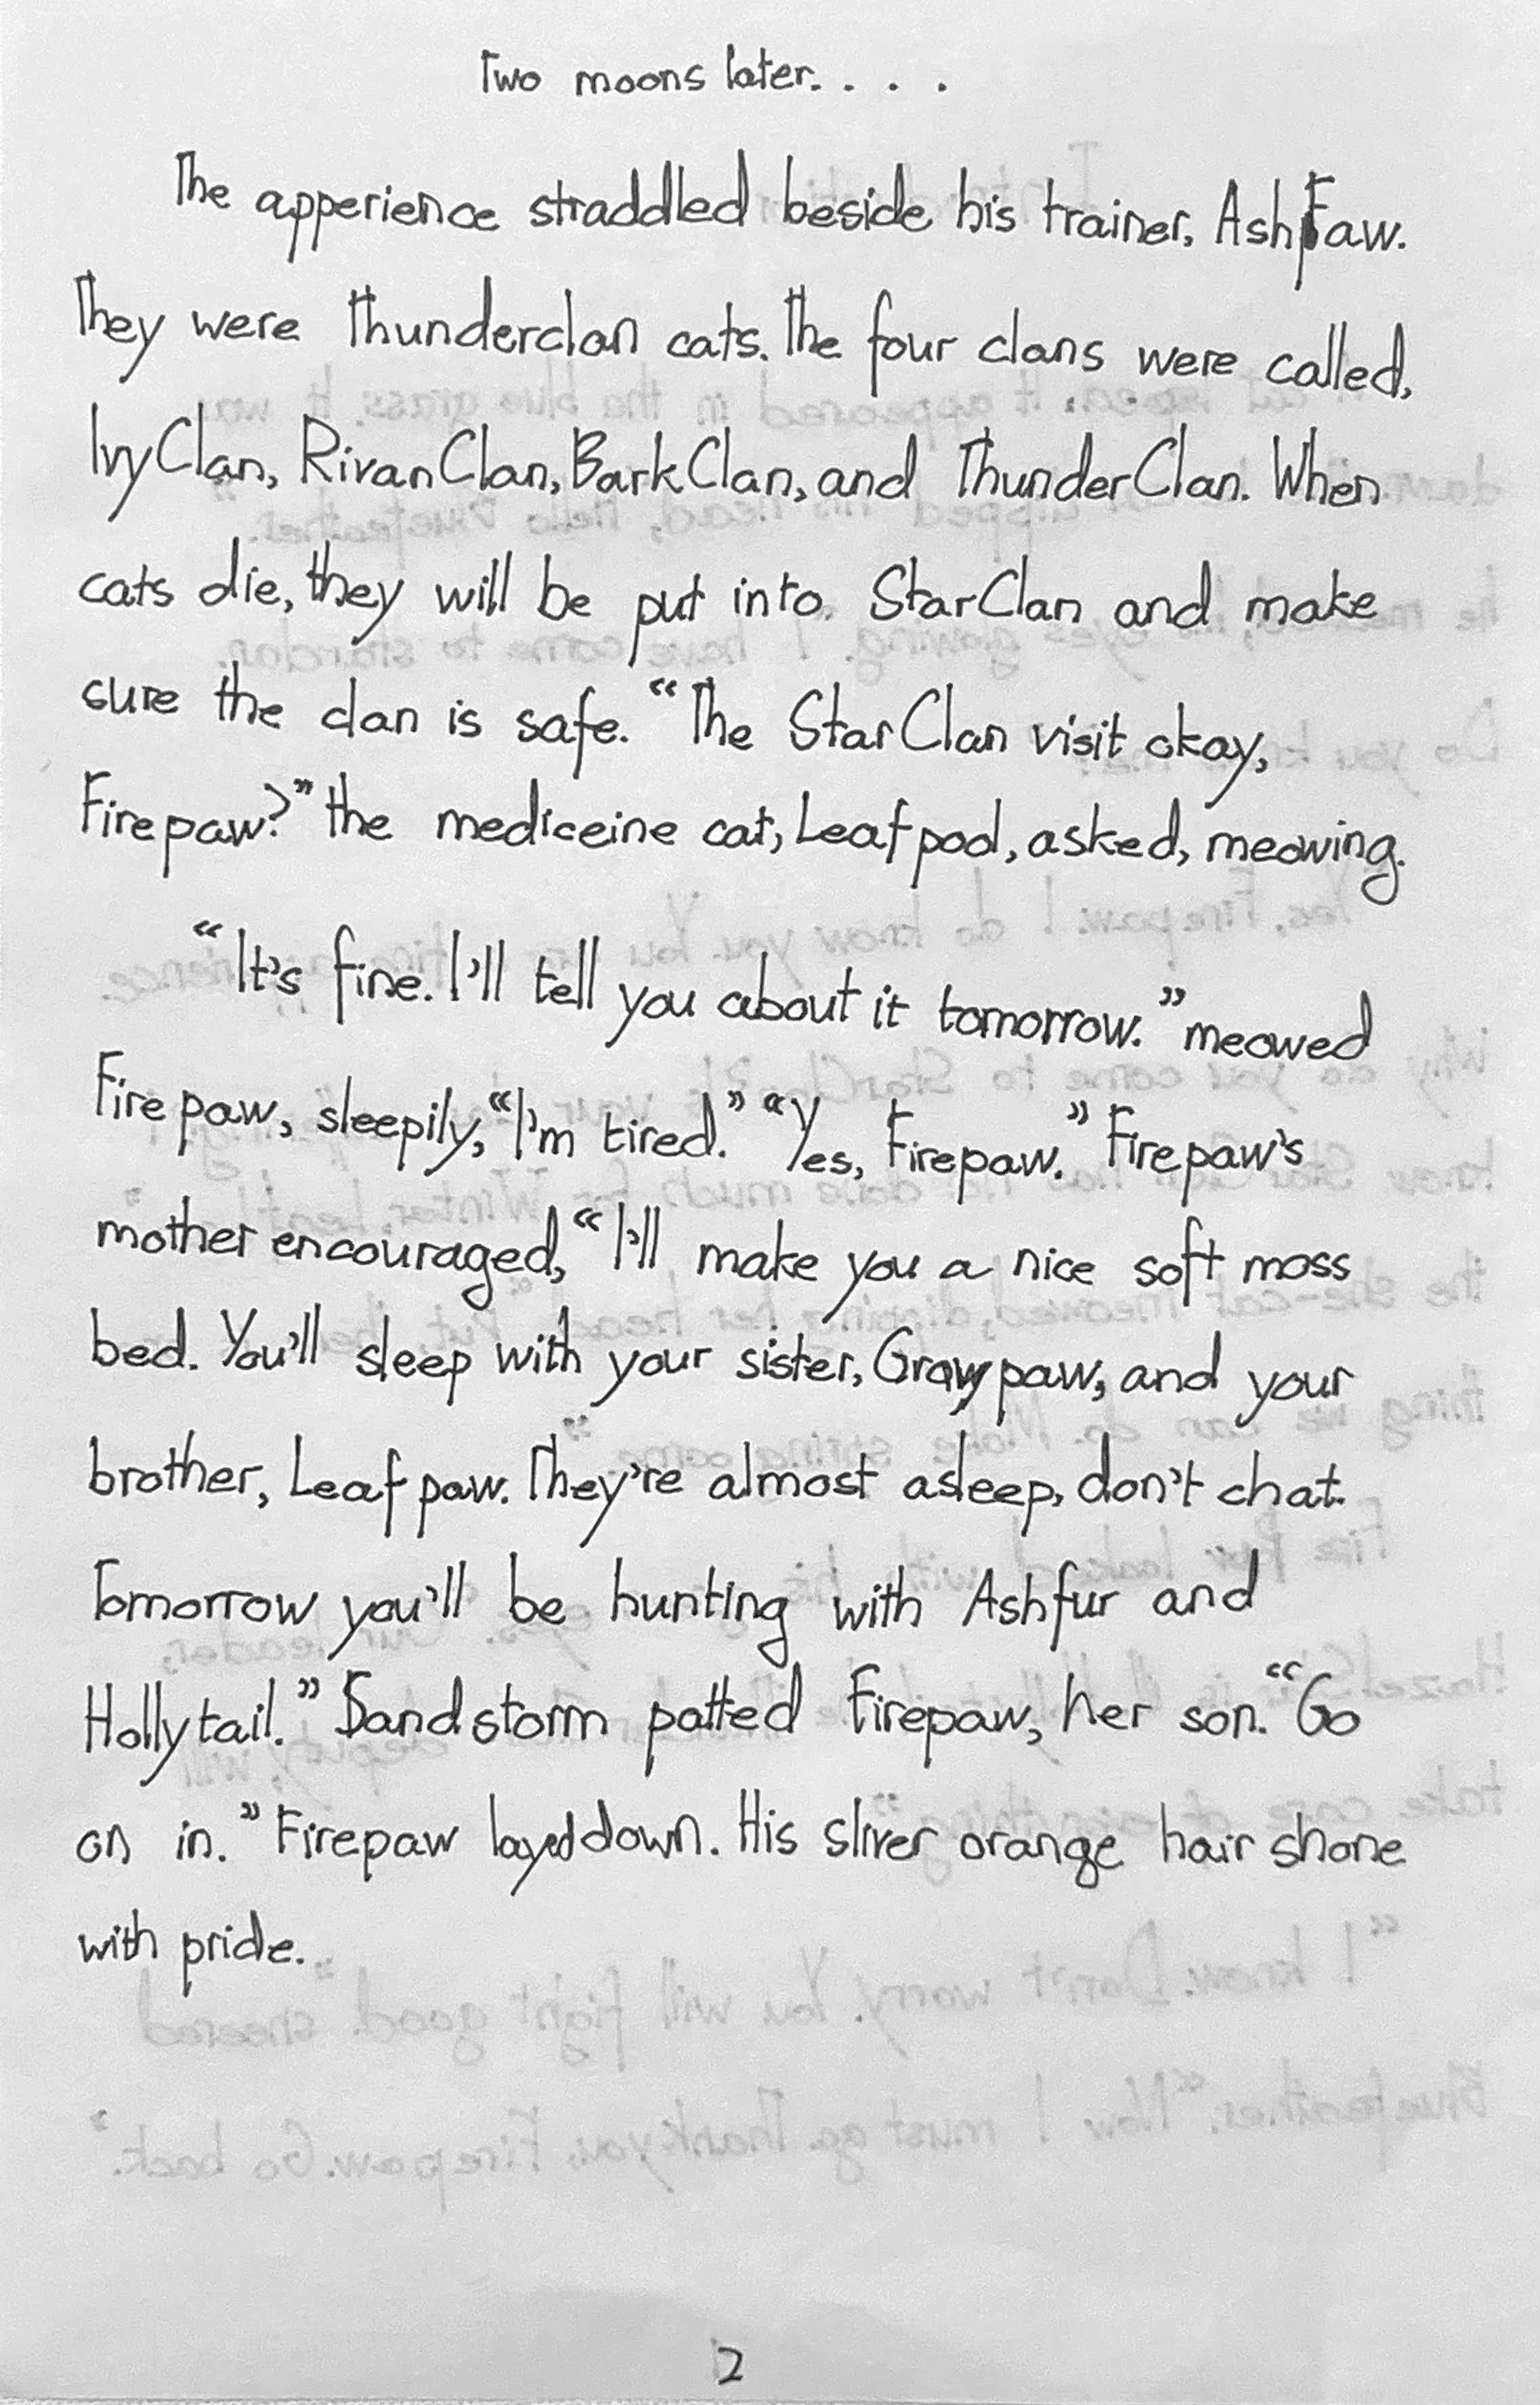 Two moons later. . . .
The apperience straddled beside his trainer, AshFaw.
They were Thunderclan cats. The four clans were called,
IvyClan, RivanClan, BarkClan, and ThunderClan. When
cats die, they will be put into StarClan and make
sure the clan is safe. “The StarClan visit okay,
Firepaw?” the mediceine cat, Leafpool, asked, meowing.
“It's fine. I'll tell you about it tomorrow.” meowed
Firepaw, sleepily, “I'm tired.” “Yes, Firepaw.” Firepaw's
mother encouraged, “I'll make you a nice soft moss
bed. You'll sleep with your sister, Graypaw, and your
brother, Leafpaw. They're almost asleep, don't chat.
Tomorrow you'll be hunting with Ashfur and
Hollytail.” Sandstorm patted Firepaw, her son. “Go
on in.” Firepaw layed down. His sliver orange hair shone
with pride.
2